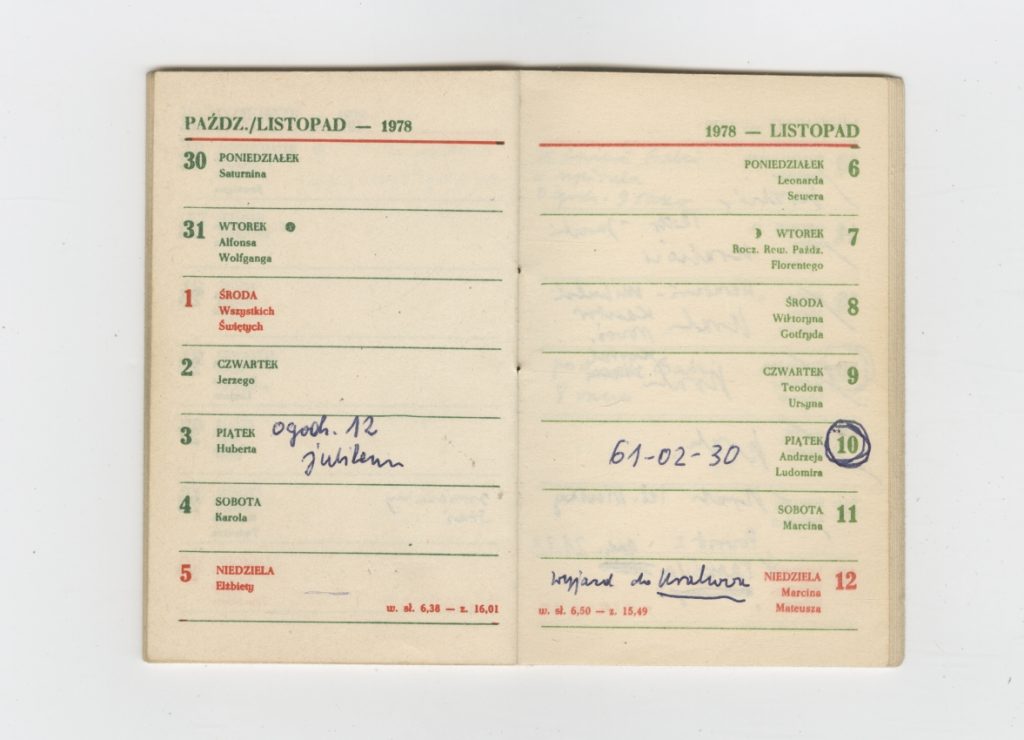 PAŹDZ./LISTOPAD — 1978
30 PONIEDZIAŁEK
Saturnina
31 WTOREK
Alfonsa
Wolfganga
1 ŚRODA
Wszystkich
Świętych
2 CZWARTEK
Jerzego
3 PIĄTEK o godz. 12
Huberta jubileum
4 SOBOTA
Karola
5 NIEDZIELA
Elżbiety
w. sł. 6,38 — z. 16,01
1978 — LISTOPAD
PONIEDZIAŁEK 6
Leonarda
Sewera
WTOREK 7
Rocz. Rew. Paźdz.
Florentego
ŚRODA 8
Wiktoryna
Gotfryda
CZWARTEK 9
Teodora
Urszyna
61-02-30 PIĄTEK 10
Andrzeja
Ludomira
SOBOTA 11
Marcina
wyjazd do Krakowa NIEDZIELA 12
Marcina
w. sł. 6,50 — z. 15,49 Mateusza